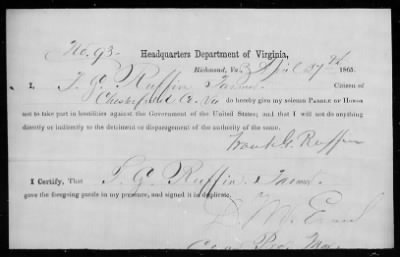 No. 93.
Headquarters Department of Virginia,
Richmond, Va., April 27th 1865.
I, F. G. Ruffin, Farmer Citizen of
Chesterfield Co. Va do hereby give my solemn PAROLE OF HONOR
not to take part in hostilities against the Government of the United States; and that I will not do anything
directly or indirectly to the detriment or disparagement of the authority of the same.
Frank G. Ruffin
I CERTIFY, THAT F. G. Ruffin, Farmer
gave the foregoing parole in my presence, and signed it in duplicate.